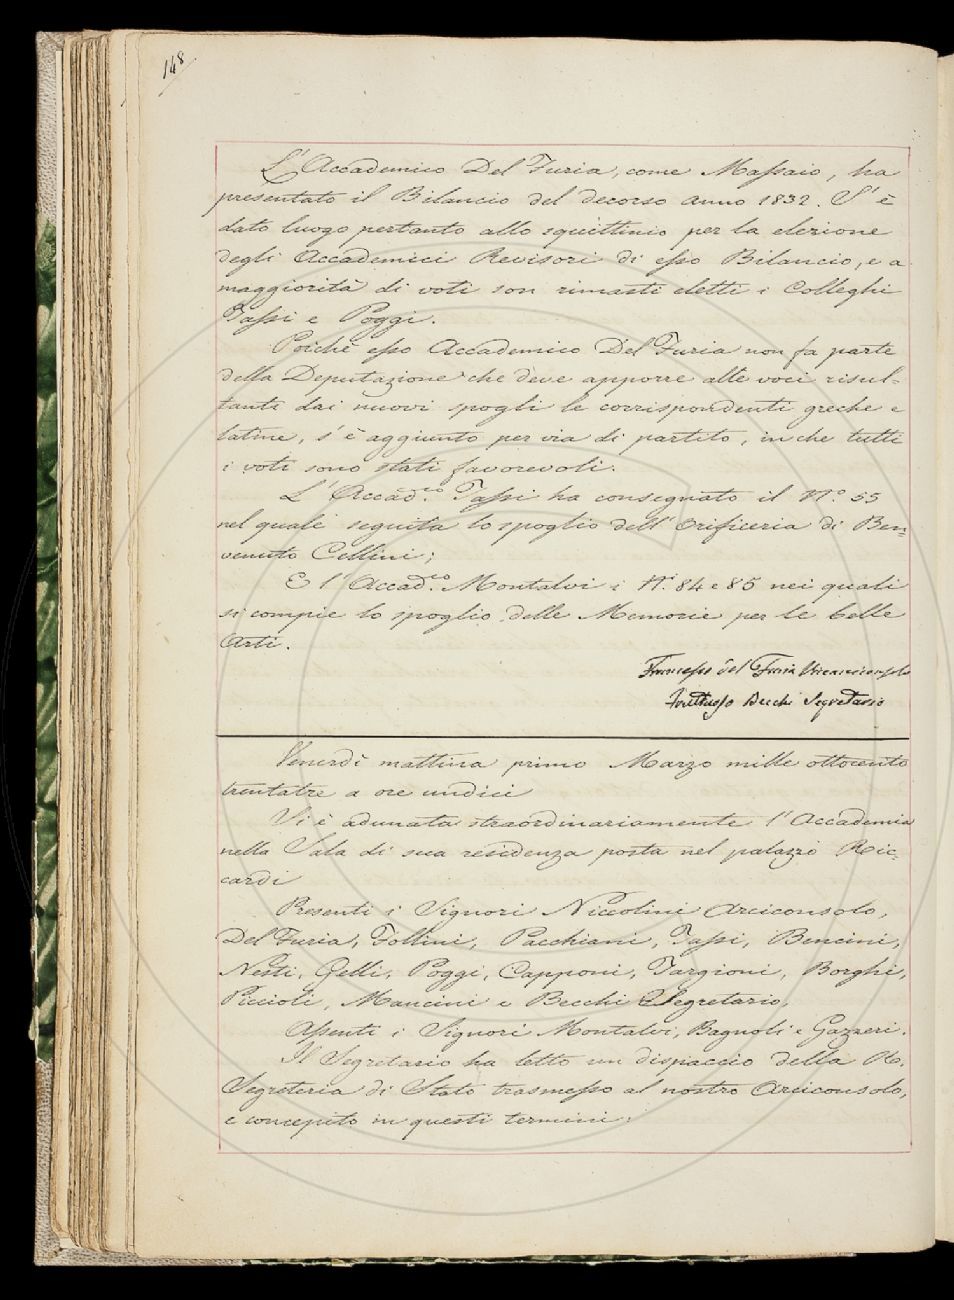 148
L'Accademico Del Furia, come Massaio, ha
presentato il Bilancio del decorso anno 1832. S'è
dato luogo pertanto allo squittinio per la elezione
degli Accademici Revisori di esso Bilancio, e a
maggiorità di voti son rimasti eletti i Colleghi
Tassi e Poggi.
Poichè esso Accademico Del Furia non fa parte
della Deputazione che deve apporre alle voci risul=
tanti dai nuovi spogli le corrispondenti greche e
latine, s'è aggiunto per via di partito, in che tutti
i voti sono stati favorevoli.
L'Accad.co Tassi ha consegnato il N.o 55
nel quale seguita lo spoglio dell'Orificeria di Ben=
venuto Cellini;
E l'Accad.co Montalvi i N.i 84 e 85 nei quali
si compie lo spoglio delle Memorie per le belle
Arti.
Francesco del Furia Vicearciconsolo
Fruttuoso Becchi Segretario
Venerdì mattina primo Marzo mille ottocento
trentatre a ore undici
Si è adunata straordinariamente l'Accademia
nella Sala di sua residenza posta nel palazzo Ric=
cardi
Presenti i Signori Niccolini Arciconsolo,
Del Furia, Follini, Pacchiani, Tassi, Bencini,
Nesti, Gelli, Poggi, Capponi, Targioni, Borghi,
Piccioli, Mancini e Becchi Segretario,
Assenti i Signori Montalvi, Bagnoli e Gazzeri.
Il Segretario ha letto un dispaccio della R.
Segreteria di Stato trasmesso al nostro Arciconsolo,
e concepito in questi termini: